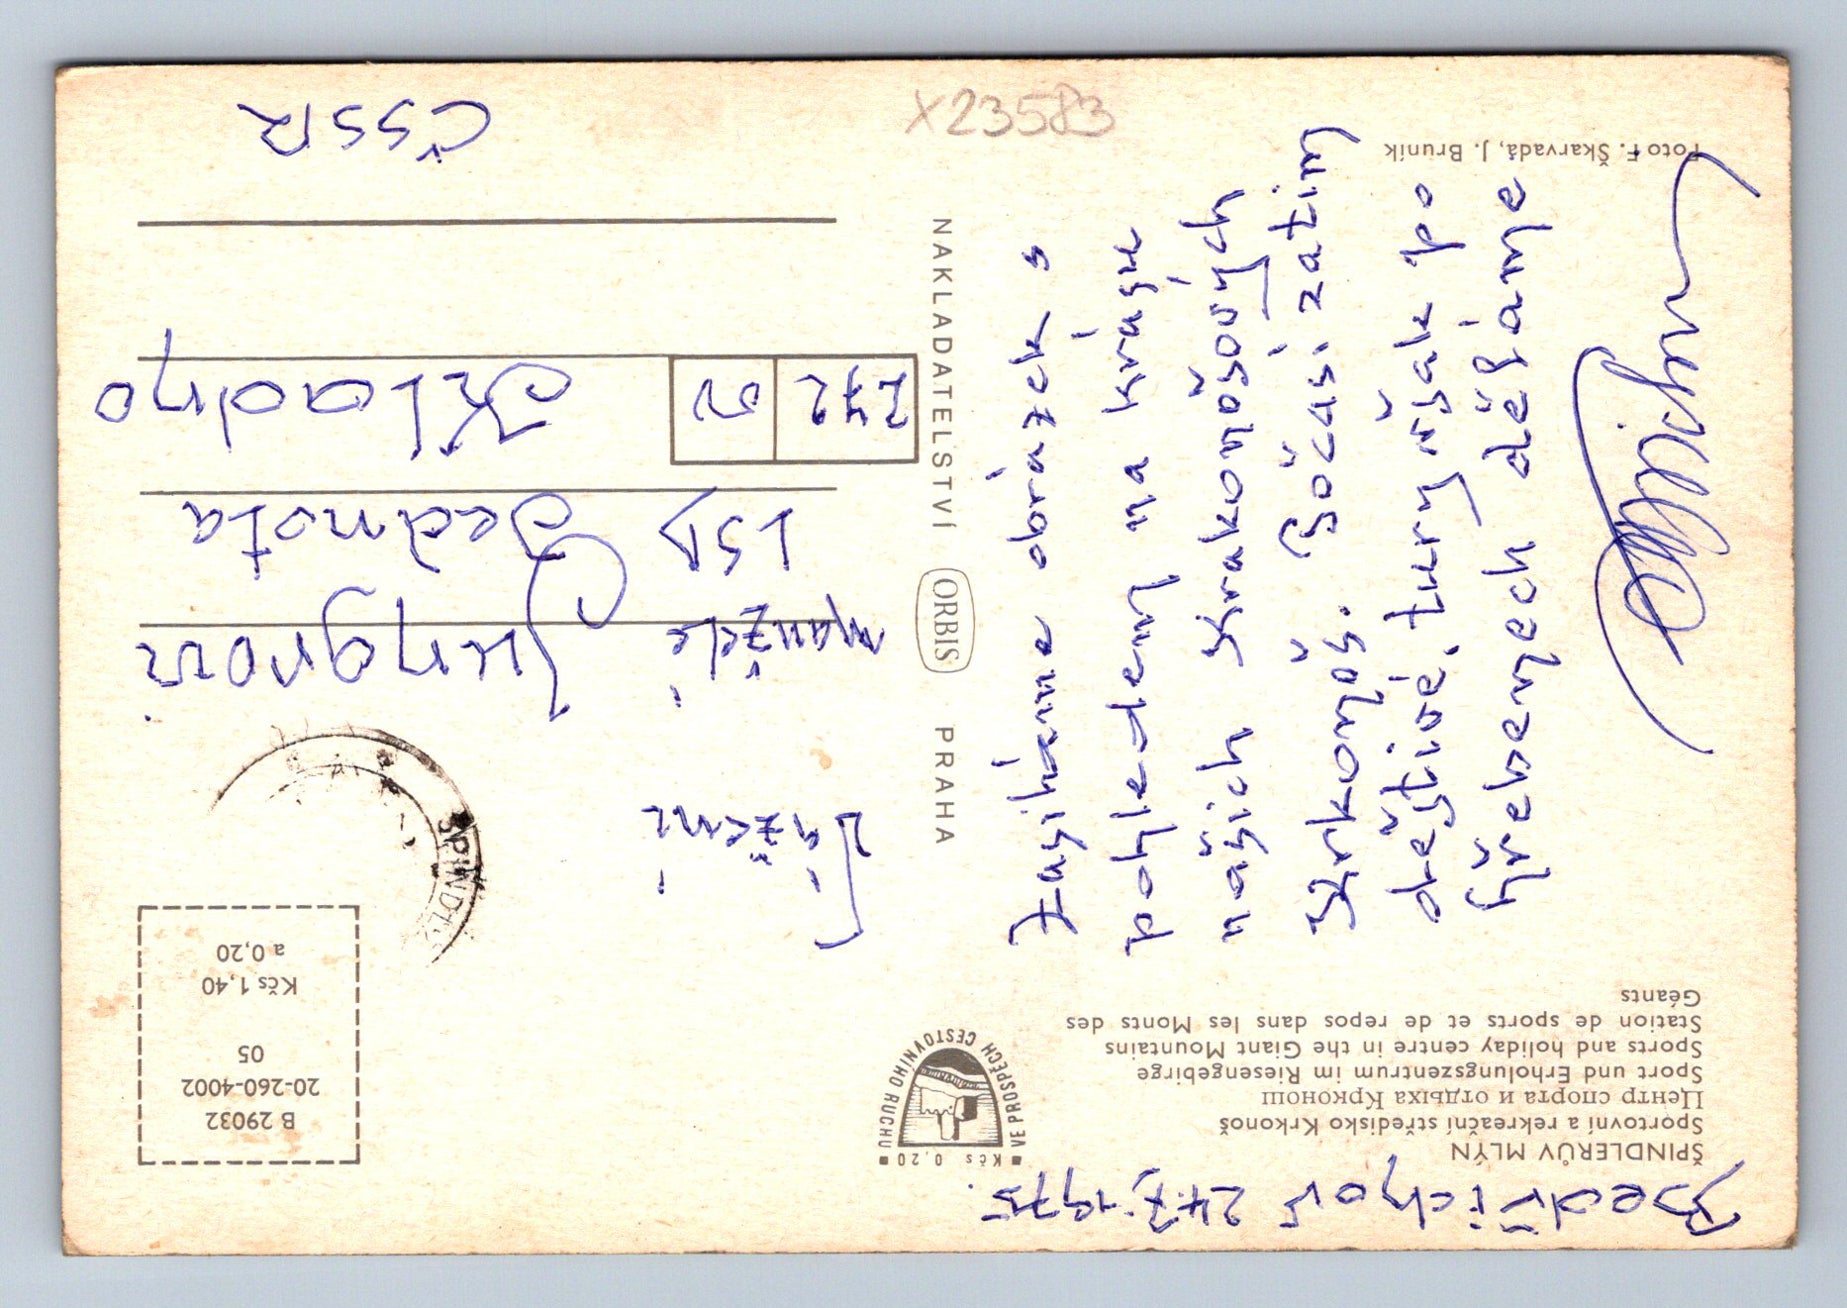 Bedřichov 24.7.1975.
ŠPINDLERŮV MLÝN
Sportovní a rekreační středisko Krkonoš
Центр спорта и отдыха Крконош
Sport und Erholungszentrum im Riesengebirge
Sports and holiday centre in the Giant Mountains
Station de sports et de repos dans les Monts des
Géants
Zasíláme obrázek s
pohledem na krásu
našich Krakonošových
Krkonoš. Počasí zatím
deštivé, túry však po
hřebenech děláme
Foto F. Škarvada, J. Bruník
X23583
■ Kčs 0,20 ■
VE PROSPĚCH CESTOVNÍHO RUCHU
NAKLADATELSTVÍ ORBIS PRAHA
B 29032
20-260-4002
05
Kčs 1,40
a 0,20
ŠPINDLE
Vážení
manželé Jungrovi
LSD Jednota
272 01
Kladno
ČSSR